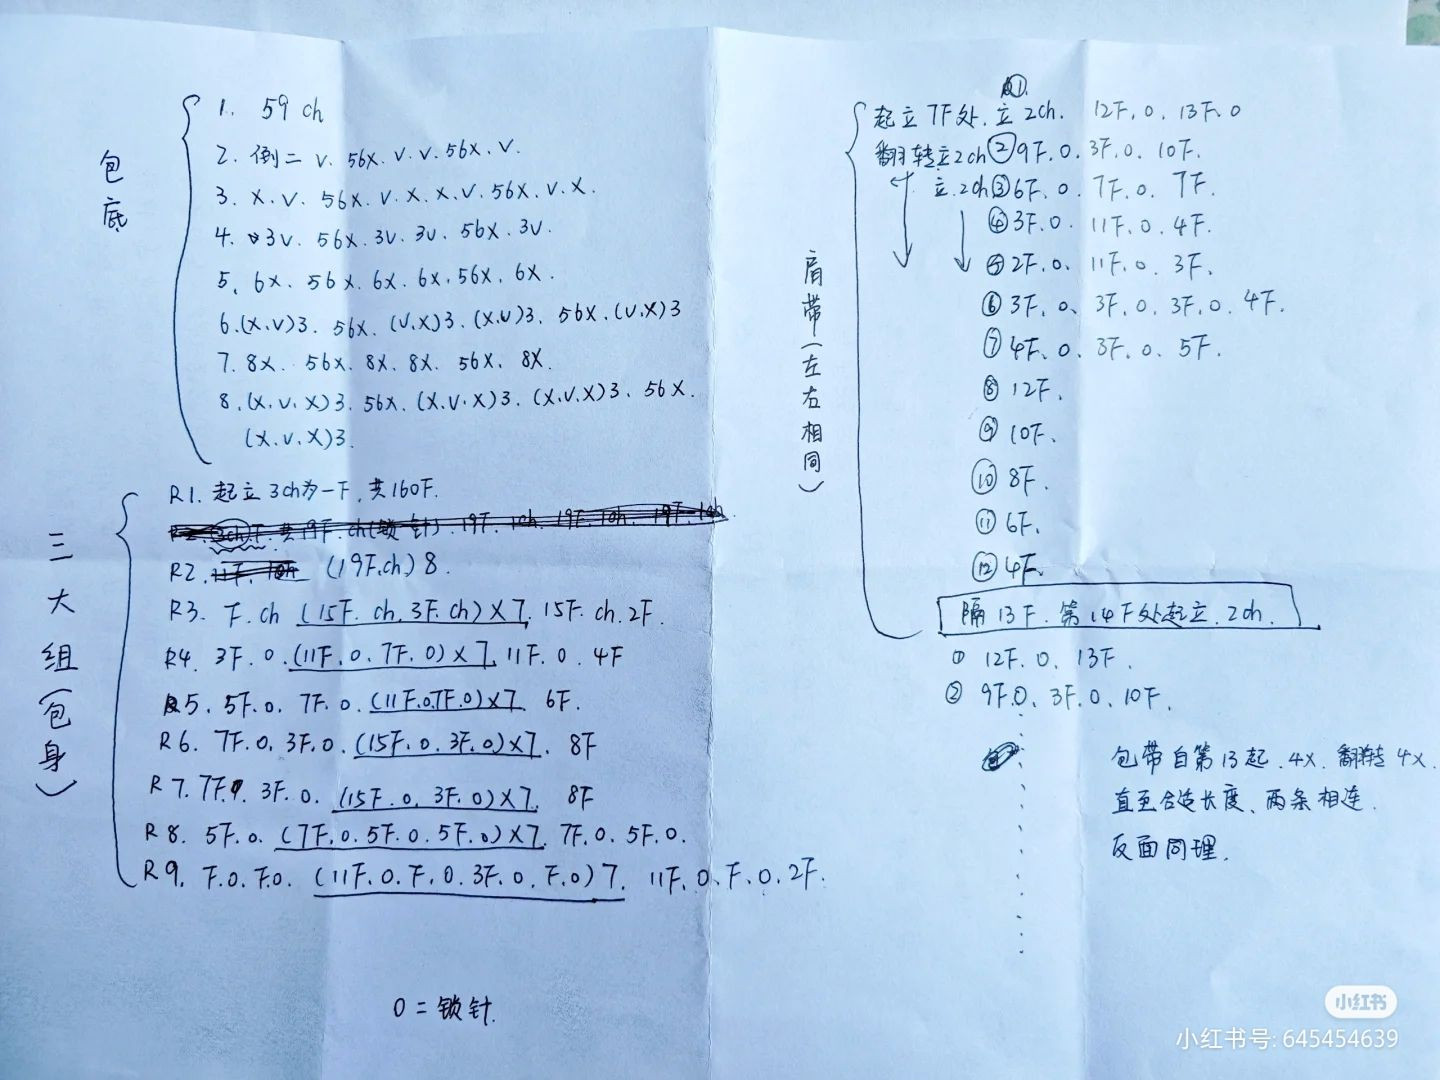 包底
1. 59 ch
2. 倒二 V. 56X. V. V. 56X. V.
3. X. V. 56X. V. X. X. V. 56X. V. X.
4. 3V. 56X. 3V. 3V. 56X. 3V.
5. 6X. 56X. 6X. 6X. 56X. 6X.
6. (X.V)3. 56X. (V.X)3. (X.V)3. 56X. (V.X)3
7. 8X. 56X. 8X. 8X. 56X. 8X.
8. (X.V.X)3. 56X. (X.V.X)3. (X.V.X)3. 56X.
(X.V.X)3.
三大组(包身)
R1. 起立3ch为一F, 共160F.
R2. (19F.ch) 8.
R3. F. ch (15F. ch. 3F. ch) X 7. 15F. ch. 2F.
R4. 3F. 0. (11F. 0. 7F. 0) X 7. 11F. 0. 4F
R5. 5F. 0. 7F. 0. (11F.0.7F.0) X 7. 6F.
R6. 7F. 0. 3F. 0. (15F. 0. 3F. 0) X 7. 8F
R7. 7F. 3F. 0. (15F. 0. 3F. 0) X 7. 8F
R8. 5F. 0. (7F. 0. 5F. 0. 5F. 0) X 7. 7F. 0. 5F. 0.
R9. F. 0. F. 0. (11F. 0. F. 0. 3F. 0. F. 0) 7. 11F. 0. F. 0. 2F.
0 = 锁针.
肩带(左右相同)
①
起立7F处. 立2ch. 12F. 0. 13F. 0
翻转立2ch ② 9F. 0. 3F. 0. 10F.
立.2ch ③ 6F. 0. 7F. 0. 7F.
④ 3F. 0. 11F. 0. 4F.
⑤ 2F. 0. 11F. 0. 3F.
⑥ 3F. 0. 3F. 0. 3F. 0. 4F.
⑦ 4F. 0. 3F. 0. 5F.
⑧ 12F.
⑨ 10F.
⑩ 8F.
⑪ 6F.
⑫ 4F.
隔13F. 第14F处起立.2ch.
① 12F. 0. 13F.
② 9F.0. 3F. 0. 10F.
包带自第13起. 4X. 翻转4X.
直至合适长度、两条相连.
反面同理.
小红书
小红书号: 645454639